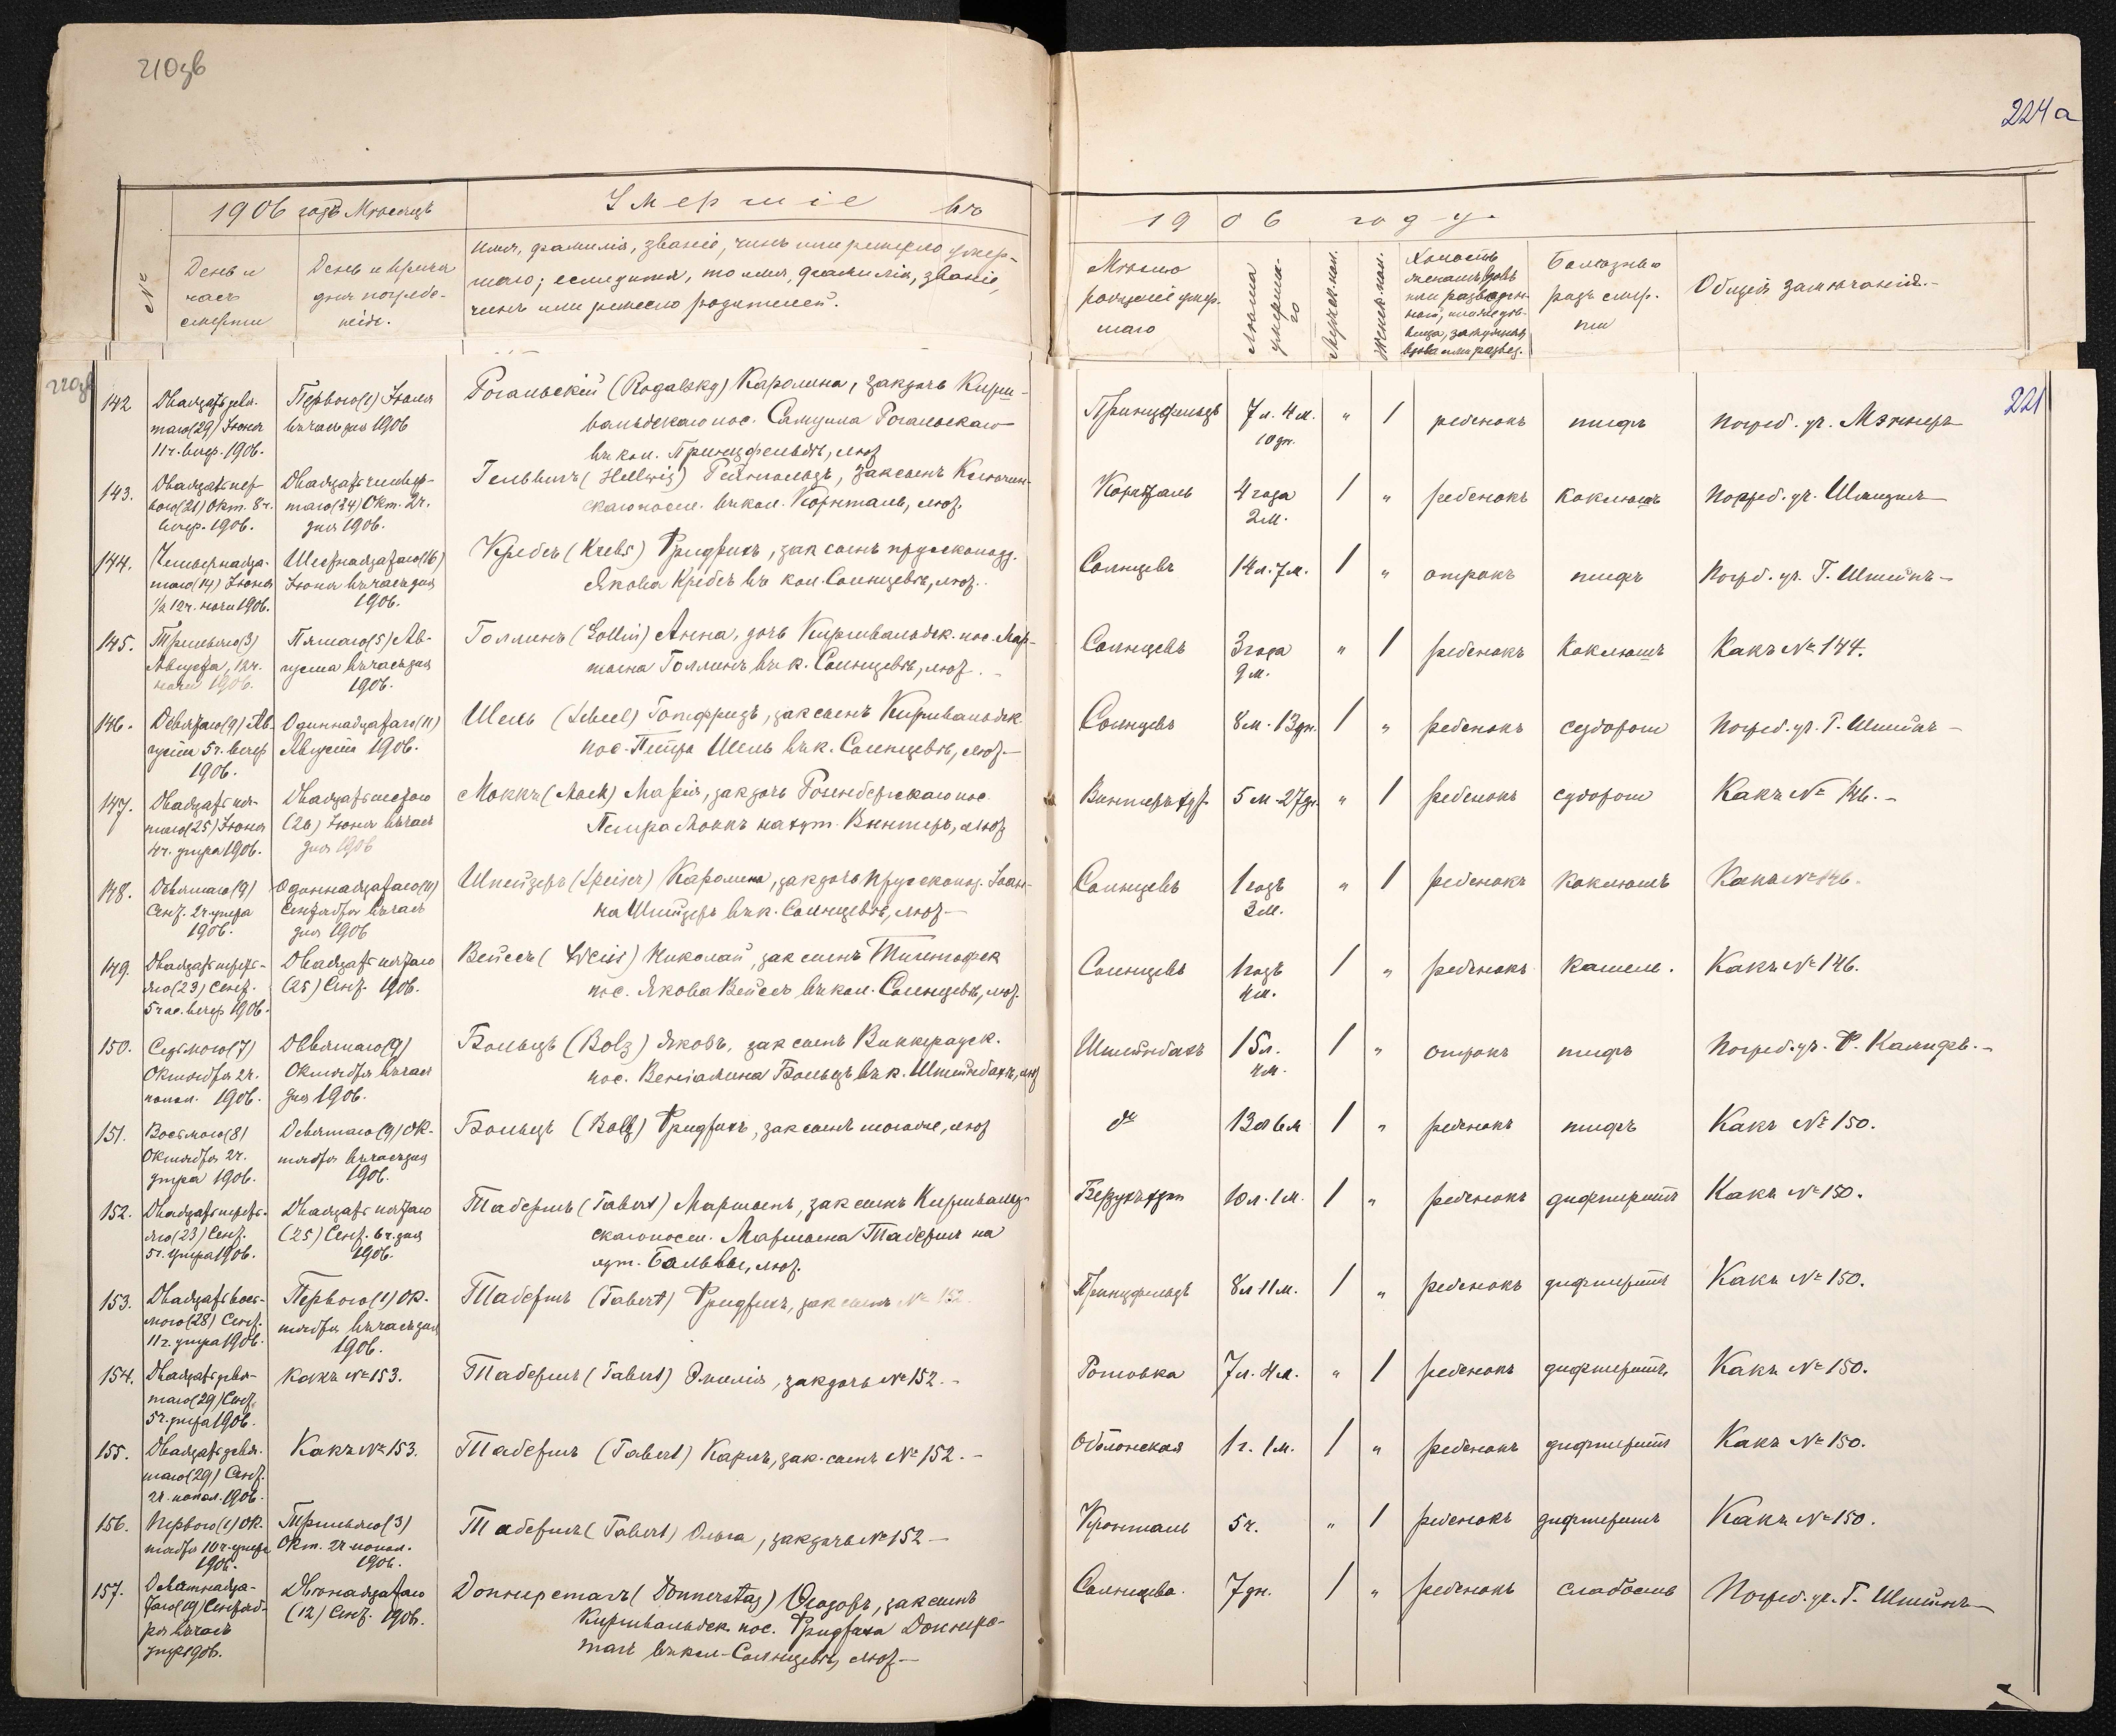 224 a
1906 годъ Мѣсяцъ
Умершіе въ
1906 году.
№
День и часъ смерти
День и время дня погребенія.
Имя, фамилія, званіе, чинъ или ремесло умер-
шаго; если дитя, то имя, фамилія, званіе,
чинъ или ремесло родителей.
Мѣсто рожденія умершаго
Лѣта умершаго
Мужск. пол.
Женск. пол.
Болѣзнь
Общія замѣчанія.-
221
142
Двадцать девя-
таго (29) Іюня
11 ч. вечер. 1906.
Перваго (1) Іюля
въ час дня 1906
Рогальскій (Rogalsky) Каролина, зак дочь Кирш-
вальдскаго пос. Самуила Рогальскаго
въ кол. Принцфельдѣ, лют
Принцфельдъ
7 л. 4 м.
10 дн.
" 1
ребенокъ
тифъ
погреб. уч.
143.
Двадцать пер-
ваго (21) Окт. 8 ч.
вечер. 1906.
Двадцать четвер-
таго (24) Окт. 2 ч.
дня 1906.
Гельвигъ (Hellwig) Рейнгольдъ, зак сынъ
скаго посел. въ кол. Корнталь, лют.
Корнталь
4 года
2 м.
1 "
ребенокъ
коклюшъ
Погреб. уч.
144.
Четырнадца-
таго (14) Іюня
½ 12 ч. ночи 1906.
Шестнадцатаго (16)
Іюня въ час дня
1906.
Кребсъ (Krebs) Фридрихъ, зак сынъ прусскоподд.
Якова Кребсъ въ кол. Солнцевѣ, лют.
Солнцевъ
14 л. 7 м.
1 "
отрокъ
тифъ
Погреб. уч. Г. Штейнъ -
145.
Третьяго (3)
Августа, 12 ч.
ночи 1906.
Пятаго (5) Ав-
густа въ час дня
1906.
Голлинъ (Gollin) Анна, дочь Киршвальдск. пос. Мар-
тына Голлинъ въ к. Солнцевѣ, лют. -
Солнцевъ
3 года
9 м.
" 1
ребенокъ
Коклюшъ
Какъ № 144.
146.
Девятаго (9) Ав-
густа 5 ч. вечер
1906.
Одиннадцатаго (11)
Августа 1906.
Шель (Scheel) Готфридъ, зак сынъ Киршвальдск
пос. Петра Шель въ к. Солнцевѣ, лют -
Солнцевъ
8 м. 13 дн.
1 "
ребенокъ
судороги
Погреб. уч. Г. Штейнъ -
147.
Двадцать пя-
таго (25) Іюня
4 ч. утра 1906.
Двадцать шестаго
(26) Іюня въ час
дня 1906
Моккъ (Mock) Марія, зак дочь Розенбергскаго пос.
Петра Моккъ на хут. Винтеръ, лют
Винтеръ хут
5 м. 27 дн.
" 1
ребенокъ
судороги
Какъ № 146. -
148.
Девятаго (9)
Сент. 2 ч. утра
1906.
Одиннадцатаго (11)
Сентября въ час
дня 1906
Шпейзеръ (Speiser) Каролина, зак дочь прусскопод. Іоан-
на Шпейзеръ въ к. Солнцевѣ, лют -
Солнцевъ
1 годъ
3 м.
" 1
ребенокъ
коклюшъ
Какъ № 146.
149.
Двадцать треть-
яго (23) Сент.
5 час. вечер 1906.
Двадцать пятаго
(25) Сент. 1906.
Вейссъ (Weiss) Николай, зак сынъ
пос. Якова Вейссъ въ кол. Солнцевѣ, лют.
Солнцевъ
1 годъ
4 м.
1 "
ребенокъ
кашель.
Какъ № 146.
150.
Седьмого (7)
Октября 2 ч.
попол. 1906.
Девятаго (9)
Октября въ час
дня 1906.
Больцъ (Bolz) Яковъ, зак сынъ Виккерауск.
пос. Веніамина Больцъ въ к. Штейнбахъ, лют
Штейнбахъ
15 л.
4 м.
1 "
отрокъ
тифъ
Погреб. уч. Ф. -
151.
Восьмого (8)
Октября 2 ч.
утра 1906.
Девятаго (9) Ок-
тября въ час дня
1906.
Больцъ (Bolz) Фридрихъ, зак сынъ тогоже, лют
do
13 л 6 м
1 "
ребенокъ
тифъ
Какъ № 150.
152.
Двадцать треть-
яго (23) Сент.
5 ч. утра 1906.
Двадцать пятаго
(25) Сент. 6 ч. дня
1906.
Табертъ (Tabert) Мартынъ, зак сынъ Киршвальд-
скаго посел. Мартына Табертъ на
хут. лют.
хут
10 л. 1 м.
1 "
ребенокъ
дифтеритъ
Какъ № 150.
153.
Двадцать вось-
мого (28) Сент.
11 ч. утра 1906.
Перваго (1) Ок-
тября въ час дня
1906.
Табертъ (Tabert) Фридрихъ, зак сынъ № 152.
Принцфельдъ
8 л 11 м.
1 "
ребенокъ
дифтеритъ
Какъ № 150.
154.
Двадцать девя-
таго (29) Сент.
5 ч. утра 1906.
Какъ № 153.
Табертъ (Tabert) Эмилія, зак дочь № 152. -
Ротовка
7 л. 4 м.
" 1
ребенокъ
дифтеритъ
Какъ № 150.
155.
Двадцать девя-
таго (29) Сент.
2 ч. попол. 1906.
Какъ № 153.
Табертъ (Tabert) Карлъ, зак. сынъ № 152. -
Оболонская
1 г. 1 м.
1 "
ребенокъ
дифтеритъ
Какъ № 150.
156.
Перваго (1) Ок-
тября 10 ч. утра
1906.
Третьяго (3)
Окт. 2 ч попол.
1906.
Табертъ (Tabert) Ольга, зак дочь № 152 -
Кронталь
5 ч.
" 1
ребенокъ
дифтеритъ
Какъ № 150.
157.
Сентяб-
ря въ час
утр 1906.
Двѣнадцатаго
(12) Сент. 1906.
Доннерстагъ (Donnerstag) Ѳеодоръ, зак сынъ
Киршвальдск. пос. Фридриха Доннерс-
тагъ въ кол. Солнцевѣ, лют -
Солнцево.
7 дн.
1 "
ребенокъ
слабость
Погреб. уч. Г. Штейнъ -